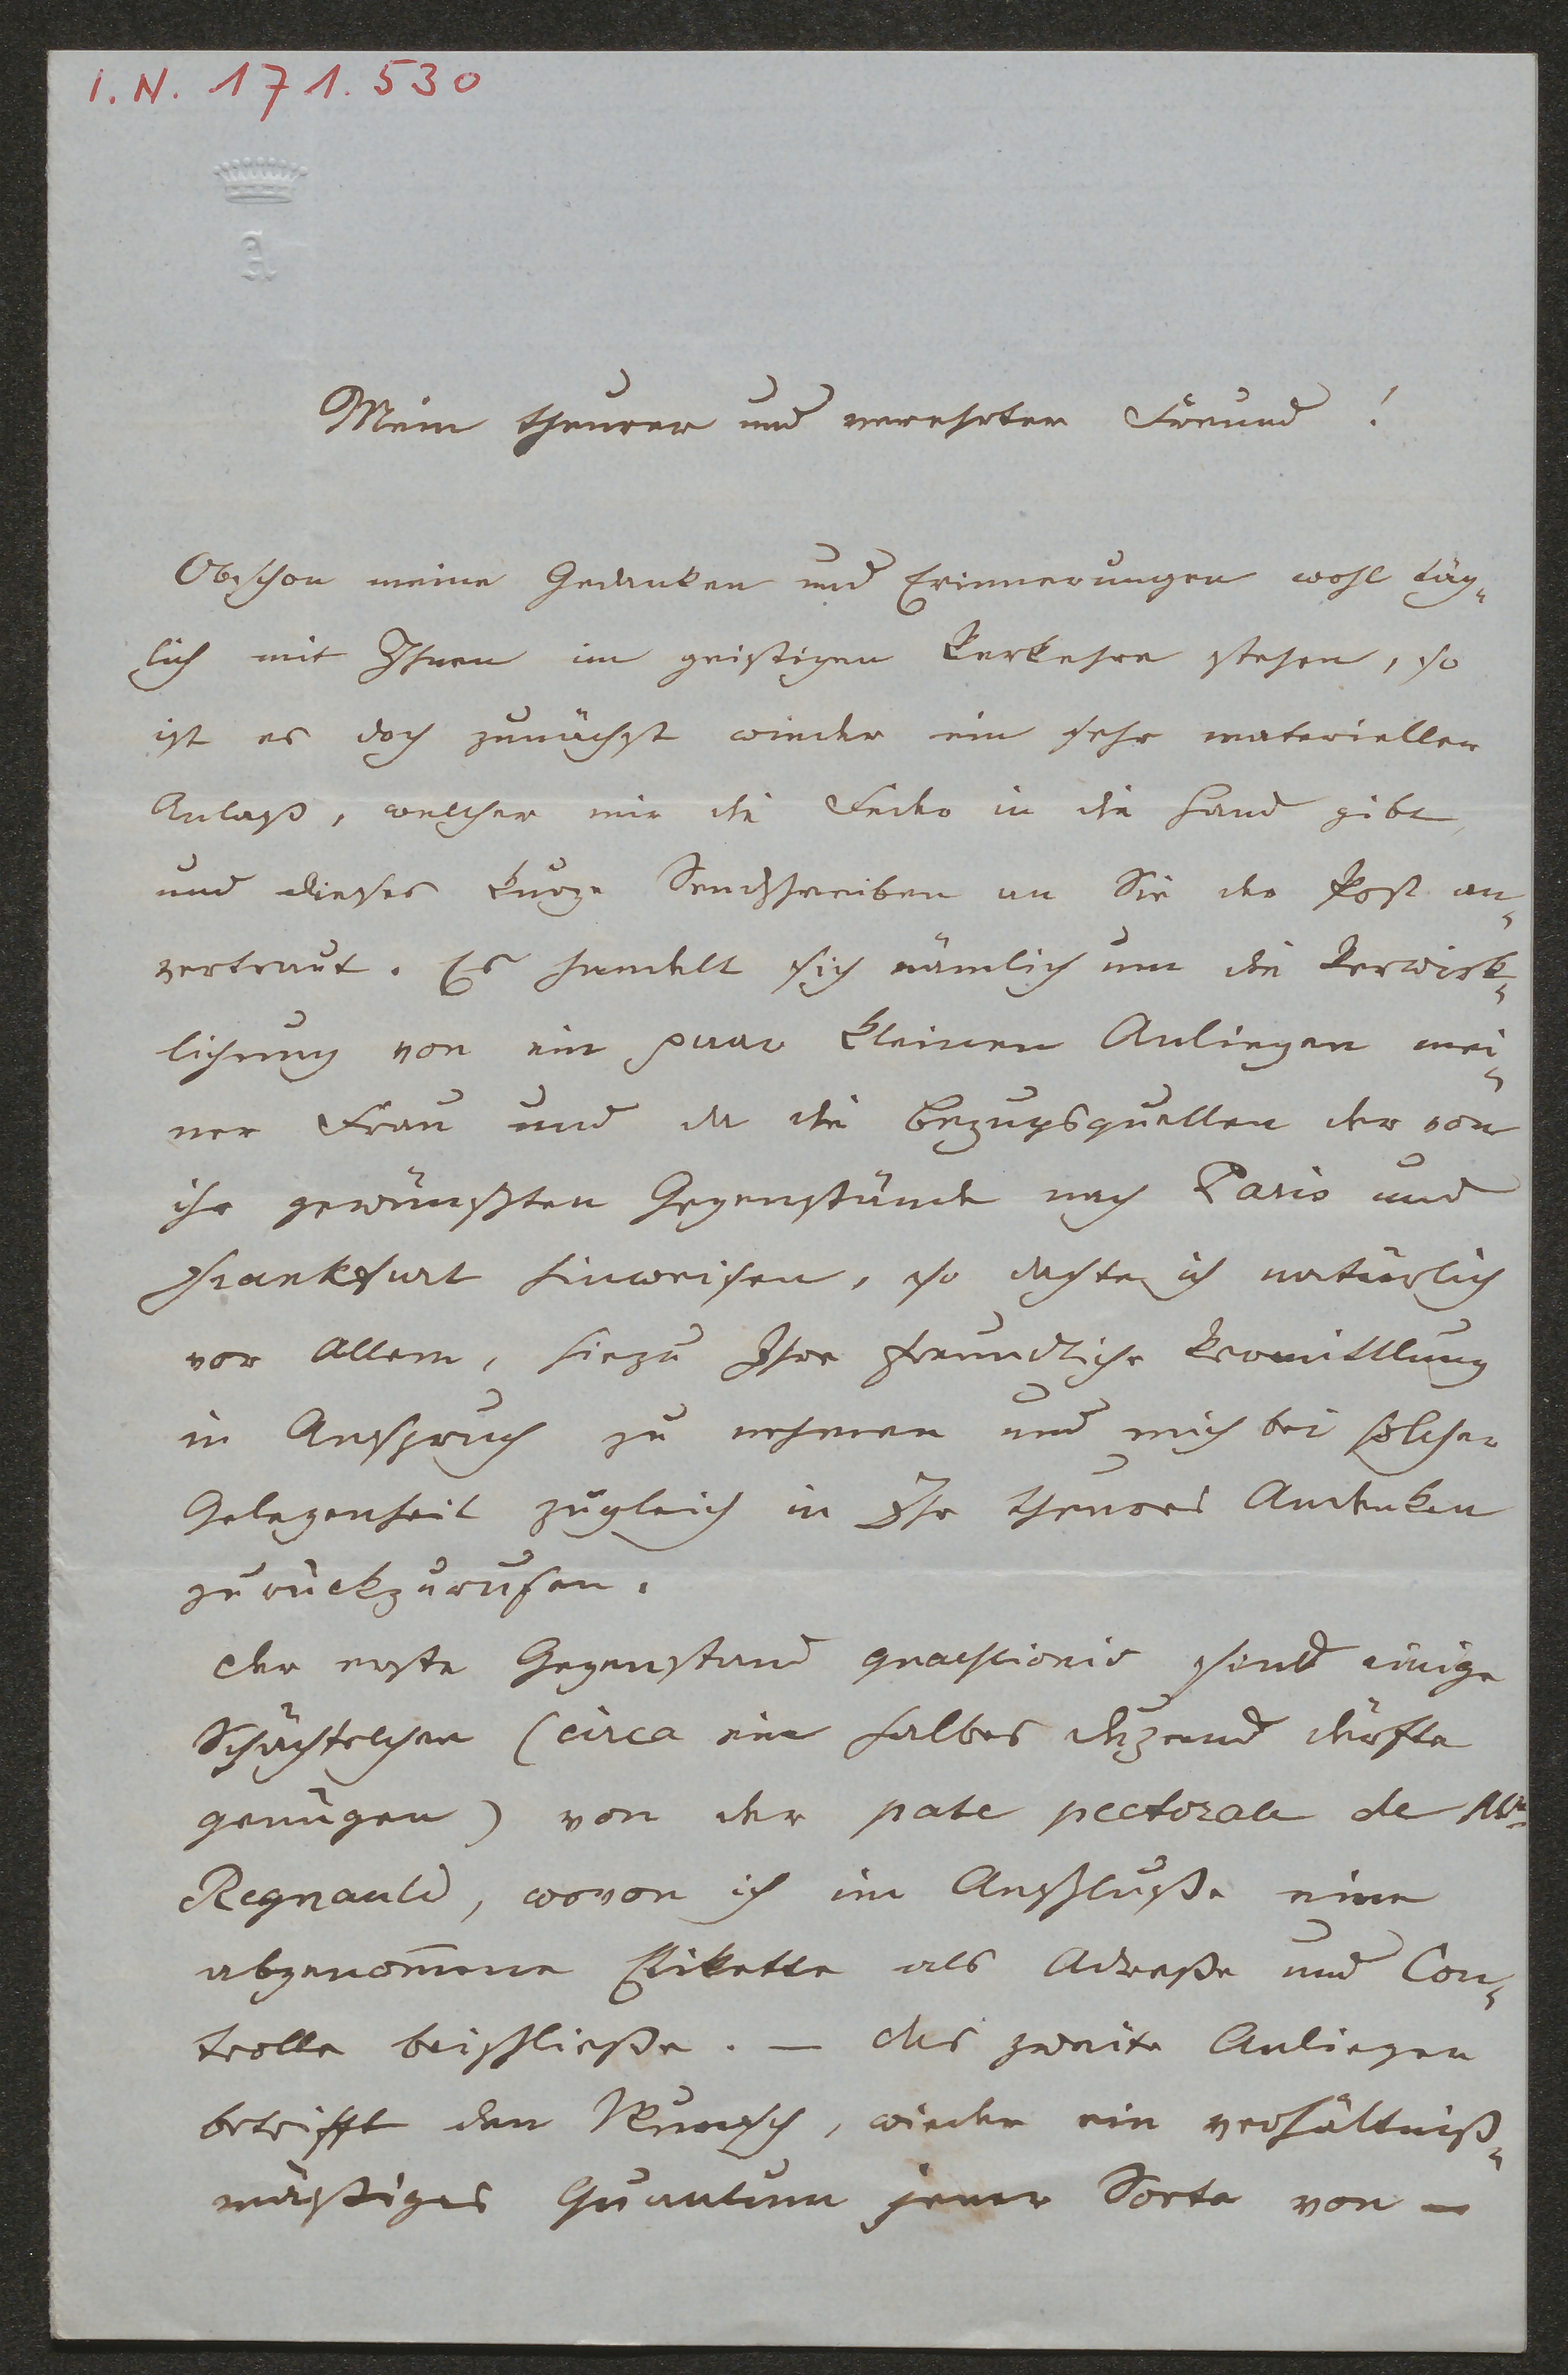 I.N. 171.530
A
Mein theurer und verehrter Freund!
Obschon meine Gedanken und Erinnerungen wohl täg„
lich mit Ihnen im geistigen Verkehre stehen, so
ist es doch zunächst wieder ein sehr materieller
Anlaß, welcher mir die Feder in die Hand gibt,
und dieses kurze Sendschreiben an Sie der Post an„
vertraut. Es handelt sich nämlich um die Verwirk„
lichung von ein paar kleinen Anliegen mei„
ner Frau und da die Bezugsquellen der von
ihr gewünschten Gegenstände nach Paris und
Frankfurt hinweisen, so dachte ich natürlich
vor Allem, hiezu Ihre freundliche Vermittlung
in Anspruch zu nehmen und mich bei solcher
Gelegenheit zugleich in Ihr theures Andenken
zurückzurufen.
Der erste Gegenstand quaestionis sind einige
Schächtelchen (circa ein halbes Duzend dürfte
genügen) von der pate pectorale de Mr
Regnauld, wovon ich im Anschluße eine
abgenom̄ene Etikette als Adreße und Con„
trolle beischließe. — Das zweite Anliegen
betrifft den Wunsch, wieder ein verhältniß„
mäßiges Quantum jener Sorte von —